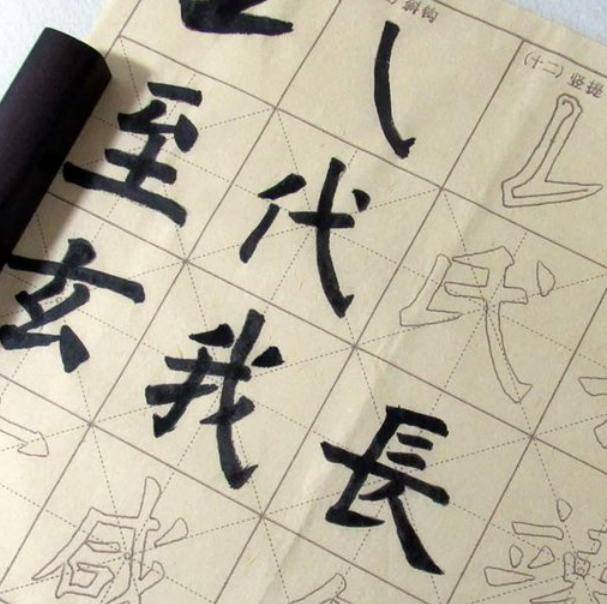 斜钩 (十二) 竖提
至 代
玄 我 長
咸